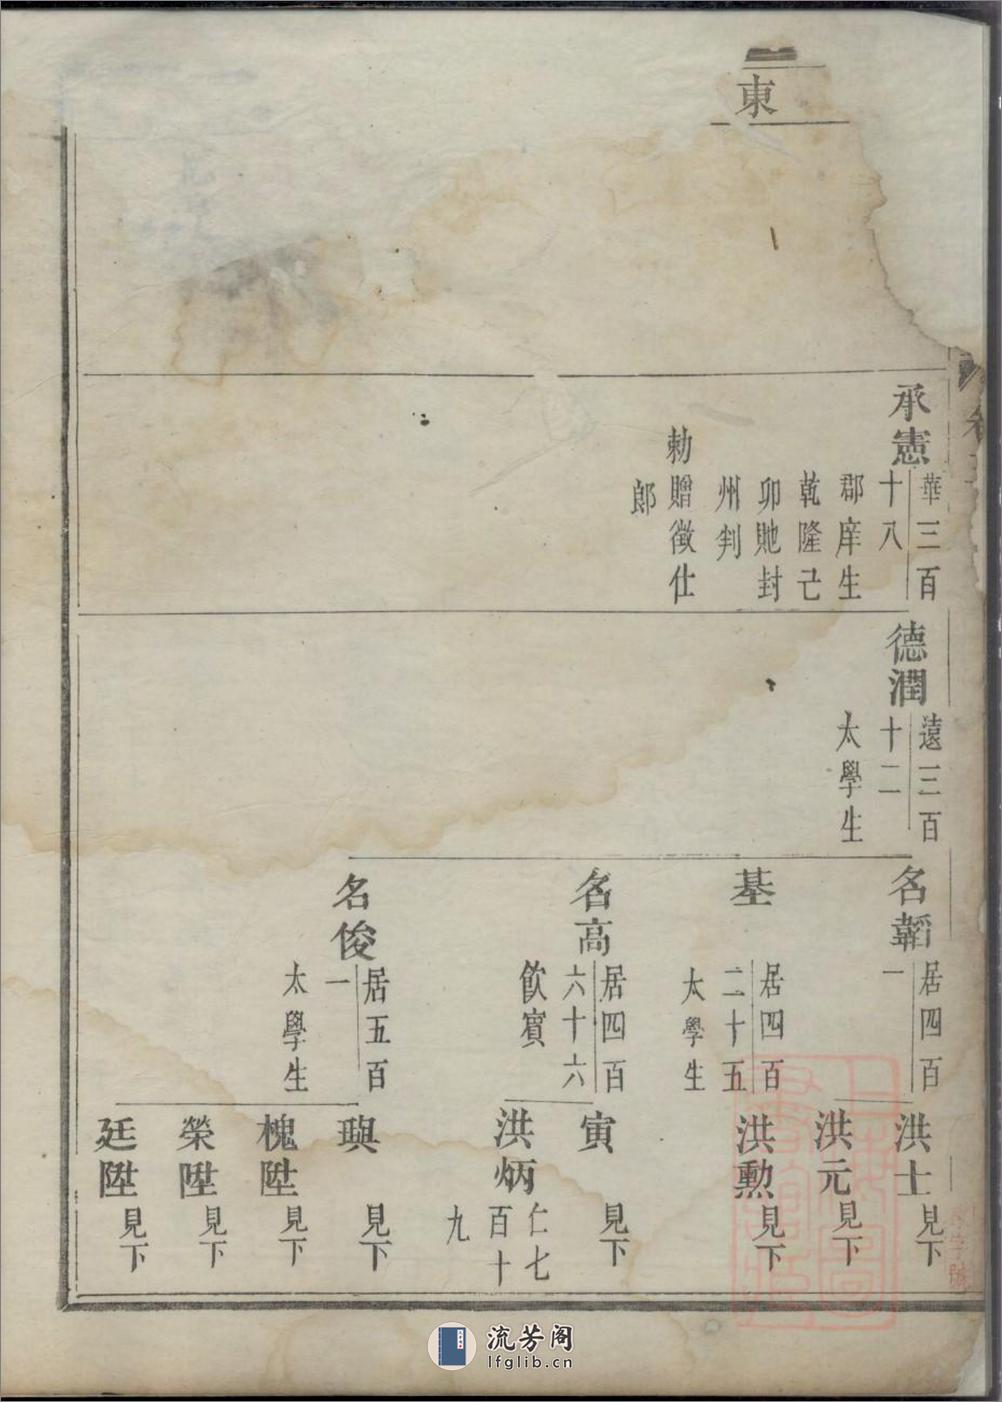 東
承憲
華三百
十八
郡庠生
乾隆己
卯貤封
州判
勅贈徵仕
郎
德潤
遠三百
十二
太學生
名韜
居四百
一
基
居四百
二十五
太學生
名高
居四百
六十六
飲賓
名俊
居五百
一
太學生
洪士
見下
洪元
見下
洪勲
見下
寅
見下
洪炳
仁七
百十
九
璵
見下
槐陞
見下
榮陞
見下
廷陞
見下
流芳阁
lfglib.cn